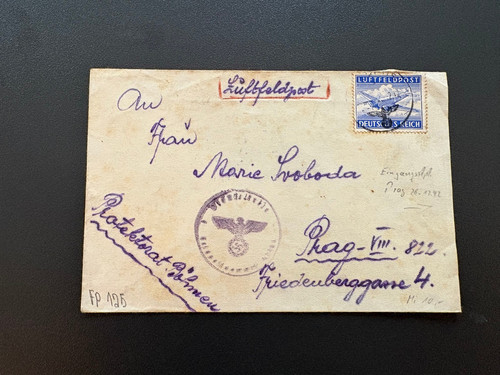 Luftfeldpost
LUFTFELDPOST
DEUTSCHES REICH
An
Frau
Marie Svoboda
Prag 26.12.42
Protektorat Böhmen
Prag-VIII. 822.
Friedenberggasse 4.
FP 125